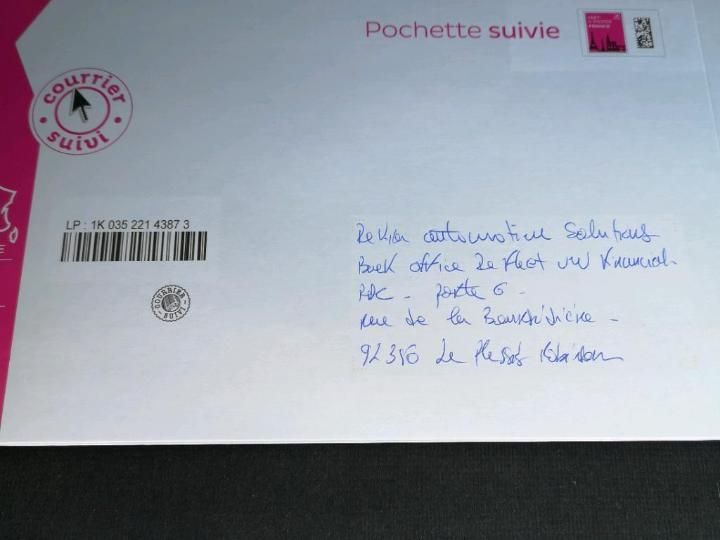 Pochette suivie
courrier
suivi
LP : 1K 035 221 4387 3
COURRIER
SUIVI
automotive Solutions
Back office Refleet VW Financial
RDC - porte 6 -
rue de la
92350 Le Plessis Robinson